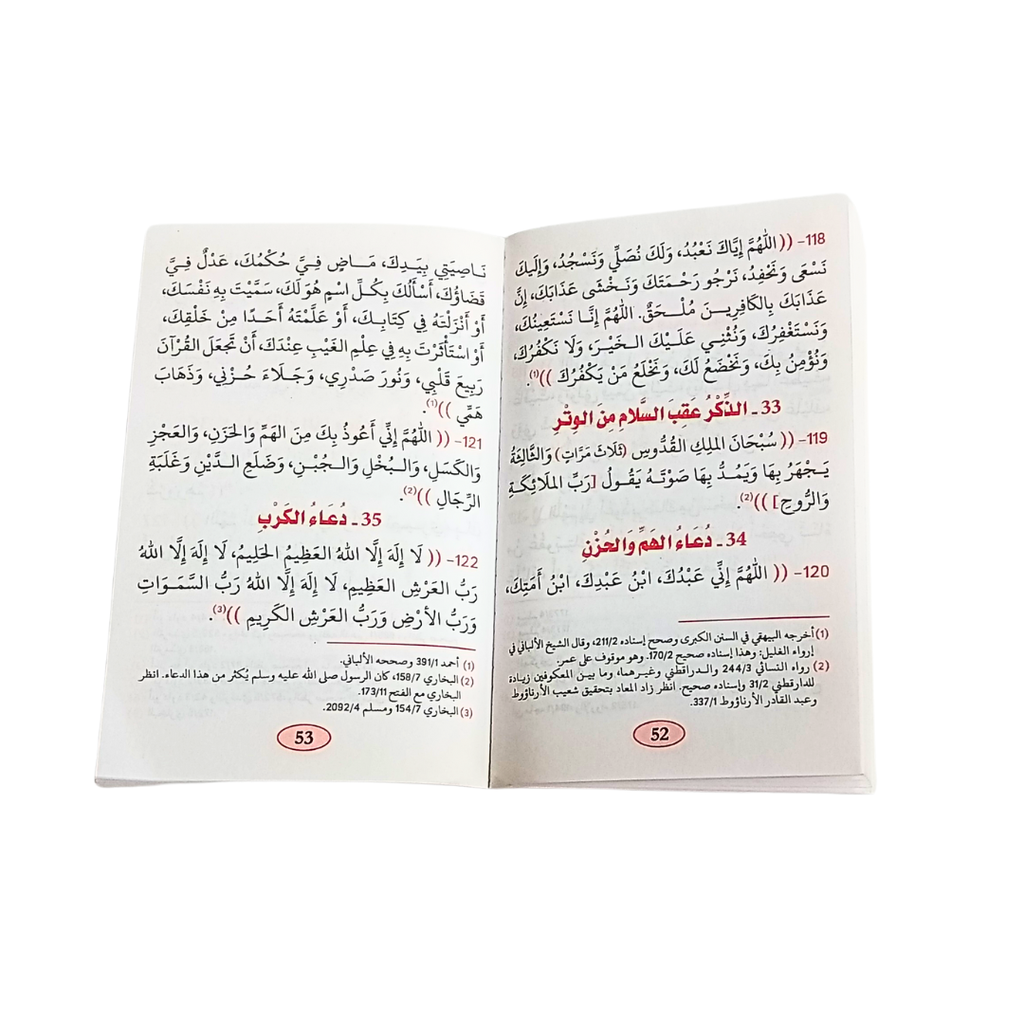 118- (( اللَّهُمَّ إِيَّاكَ نَعْبُدُ، وَلَكَ نُصَلِّي وَنَسْجُدُ، وَإِلَيْكَ
نَسْعَى وَنَحْفِدُ، نَرْجُو رَحْمَتَكَ وَنَخْشَى عَذَابَكَ، إِنَّ
عَذَابَكَ بِالكَافِرِينَ مُلْحَقٌ. اللَّهُمَّ إِنَّا نَسْتَعِينُكَ،
وَنَسْتَغْفِرُكَ، وَنُثْنِي عَلَيْكَ الخَيْرَ، وَلَا نَكْفُرُكَ،
وَنُؤْمِنُ بِكَ، وَنَخْضَعُ لَكَ، وَنَخْلَعُ مَنْ يَكْفُرُكَ ))(1).
33 ـ الذِّكْرُ عَقِبَ السَّلامِ مِنَ الوِتْرِ
119- (( سُبْحَانَ المَلِكِ القُدُّوسِ (ثَلاثَ مَرَّاتٍ) وَالثَّالِثَةُ
يَجْهَرُ بِهَا وَيَمُدُّ بِهَا صَوْتَهُ يَقُولُ [رَبِّ المَلَائِكَةِ
وَالرُّوحِ] ))(2).
34 ـ دُعَاءُ الهَمِّ وَالحُزْنِ
120- (( اللَّهُمَّ إِنِّي عَبْدُكَ، ابْنُ عَبْدِكَ، ابْنُ أَمَتِكَ،
(1) أخرجه البيهقي في السنن الكبرى وصحح إسناده 211/2، وقال الشيخ الألباني في
إرواء الغليل: وهذا إسناده صحيح 170/2. وهو موقوف على عمر.
(2) رواه النسائي 244/3 والدراقطني وغيرهما، وما بين المعكوفين زيادة
للدارقطني 31/2 وإسناده صحيح. انظر زاد المعاد بتحقيق شعيب الأرناؤوط
وعبد القادر الأرناؤوط 337/1.
52
نَاصِيَتِي بِيَدِكَ، مَاضٍ فِيَّ حُكْمُكَ، عَدْلٌ فِيَّ
قَضَاؤُكَ، أَسْأَلُكَ بِكُلِّ اسْمٍ هُوَ لَكَ، سَمَّيْتَ بِهِ نَفْسَكَ،
أَوْ أَنْزَلْتَهُ فِي كِتَابِكَ، أَوْ عَلَّمْتَهُ أَحَدًا مِنْ خَلْقِكَ،
أَوْ اسْتَأْثَرْتَ بِهِ فِي عِلْمِ الغَيْبِ عِنْدَكَ، أَنْ تَجْعَلَ القُرْآنَ
رَبِيعَ قَلْبِي، وَنُورَ صَدْرِي، وَجَلَاءَ حُزْنِي، وَذَهَابَ
هَمِّي ))(1).
121- (( اللَّهُمَّ إِنِّي أَعُوذُ بِكَ مِنَ الهَمِّ وَالحَزَنِ، وَالعَجْزِ
وَالكَسَلِ، وَالبُخْلِ وَالجُبْنِ، وَضَلَعِ الدَّيْنِ وَغَلَبَةِ
الرِّجَالِ ))(2).
35 ـ دُعَاءُ الكَرْبِ
122- (( لَا إِلَهَ إِلَّا اللهُ العَظِيمُ الحَلِيمُ، لَا إِلَهَ إِلَّا اللهُ
رَبُّ العَرْشِ العَظِيمِ، لَا إِلَهَ إِلَّا اللهُ رَبُّ السَّمَوَاتِ
وَرَبُّ الأَرْضِ وَرَبُّ العَرْشِ الكَرِيمِ ))(3).
(1) أحمد 391/1 وصححه الألباني.
(2) البخاري 158/7، كان الرسول صلى الله عليه وسلم يُكثر من هذا الدعاء. انظر
البخاري مع الفتح 173/11.
(3) البخاري 154/7 ومسلم 2092/4.
53